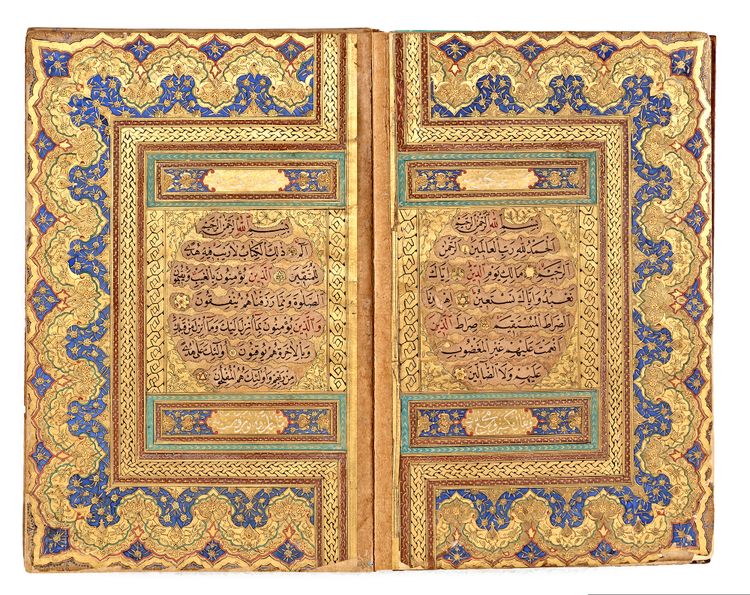 بسم الله الرحمن الرحيم
الحمد لله رب العالمين الرحمن
الرحيم مالك يوم الدين اياك
نعبد واياك نستعين اهدنا
الصراط المستقيم صراط الذين
انعمت عليهم غير المغضوب
عليهم ولا الضالين
بسم الله الرحمن الرحيم
الم ذلك الكتاب لا ريب فيه هدى
للمتقين الذين يؤمنون بالغيب ويقيمون
الصلوة ومما رزقناهم ينفقون
والذين يؤمنون بما انزل اليك وما انزل من قبلك
وبالاخرة هم يوقنون اولئك على هدى
من ربهم واولئك هم المفلحون